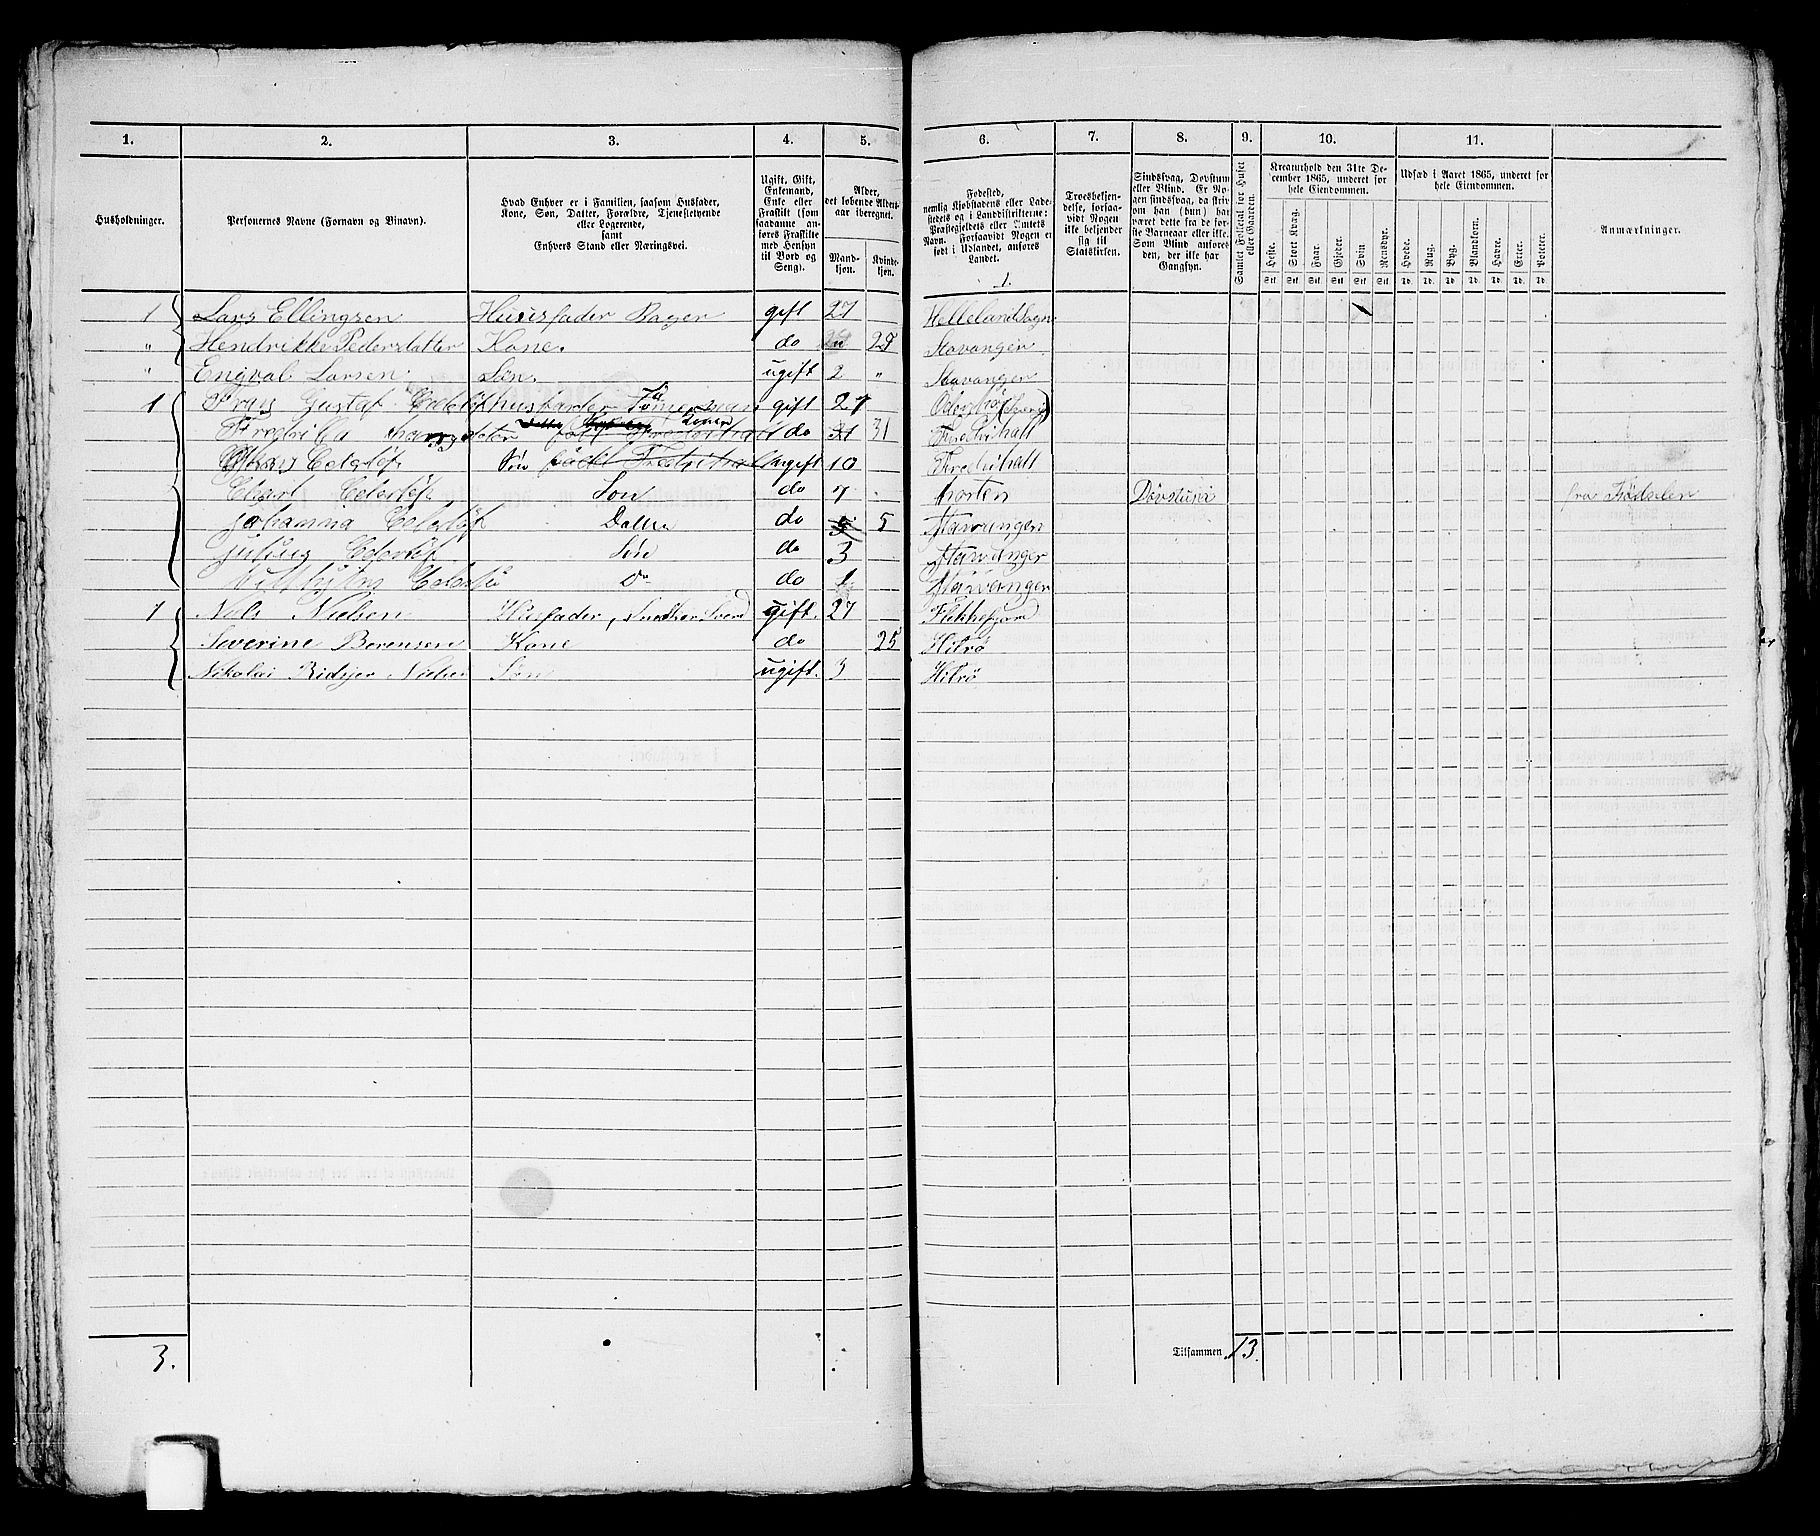 1. 2. 3. 4. 5. 6. 7. 8. 9. 10. 11.
Husholdninger.
Personernes Navne (Fornavn og Binavn).
Hvad Enhver er i Familien, saasom Husfader,
Kone, Søn, Datter, Forældre, Tjenestetyende
eller Logerende,
samt
Enhvers Stand eller Næringsvei.
Ugift, Gift,
Enkemand,
Enke eller
Fraskilt (som
saadanne an-
føres Fraskilte
med Hensyn
til Bord og
Seng).
Alder,
det løbende Alders-
aar iberegnet.
Mand-
kjøn.
Kvinde-
kjøn.
Fødested,
nemlig Kjøbstadens eller Lade-
stedets og i Landdistrikterne:
Præstegjeldets eller Amtets
Navn. Forsaavidt Nogen er
født i Udlandet, anføres
Landet.
Troesbekjen-
delse, forsaa-
vidt Nogen
ikke bekjender
sig til
Statskirken.
Sindssvag, Døvstum
eller Blind. Er No-
gen sindssvag, da skriv
om han (hun) har
været dette fra de før-
ste Barneaar eller ikke.
Som Blind anføres
den, der ikke har
Gangsyn.
Samlet Folketal for Huset
eller Gaarden.
Kreaturhold den 31te De-
cember 1865, underet for
hele Eiendommen.
Heste. Stort Kvæg. Faar. Gjeder. Svin Rensdyr.
Stk. Stk. Stk. Stk. Stk. Stk.
Udsæd i Aaret 1865, underet for
hele Eiendommen.
Hvede. Rug. Byg. Blandkorn. Havre. Erter. Poteter.
Td. Td. Td. Td. Td. Td. Td.
Anmærkninger.
1.
1 Lars Ellingsen Huusfader Bager gift 27 Hellelands
" Hendrikke Pedersdatter Kone. do 28 Stavanger
" Engval Larsen. Søn. ugift 2 " Stavanger
1 Frans Gustaf husfader Tømerman gift 27
Fredrika Kone født Fredrikhalt do 31 31 Fredrikhalt
Oskar Søn født Fredrikhalt ugift 10 Fredrikhalt
Søn do 7 Horten Døvstum fra Fødselen
Johanna Datter do 5 5 Stavanger
Julius Søn do 3 Stavanger
Do do 1 Stavanger
1 Nils Nielsen Husfader, Snedker Svend gift. 27 Flekkefjord
Severine Berensen Kone do 25 Hitrø
Nikolai Nielsen Søn ugift. 3 Hitrø
3.
Tilsammen 13.